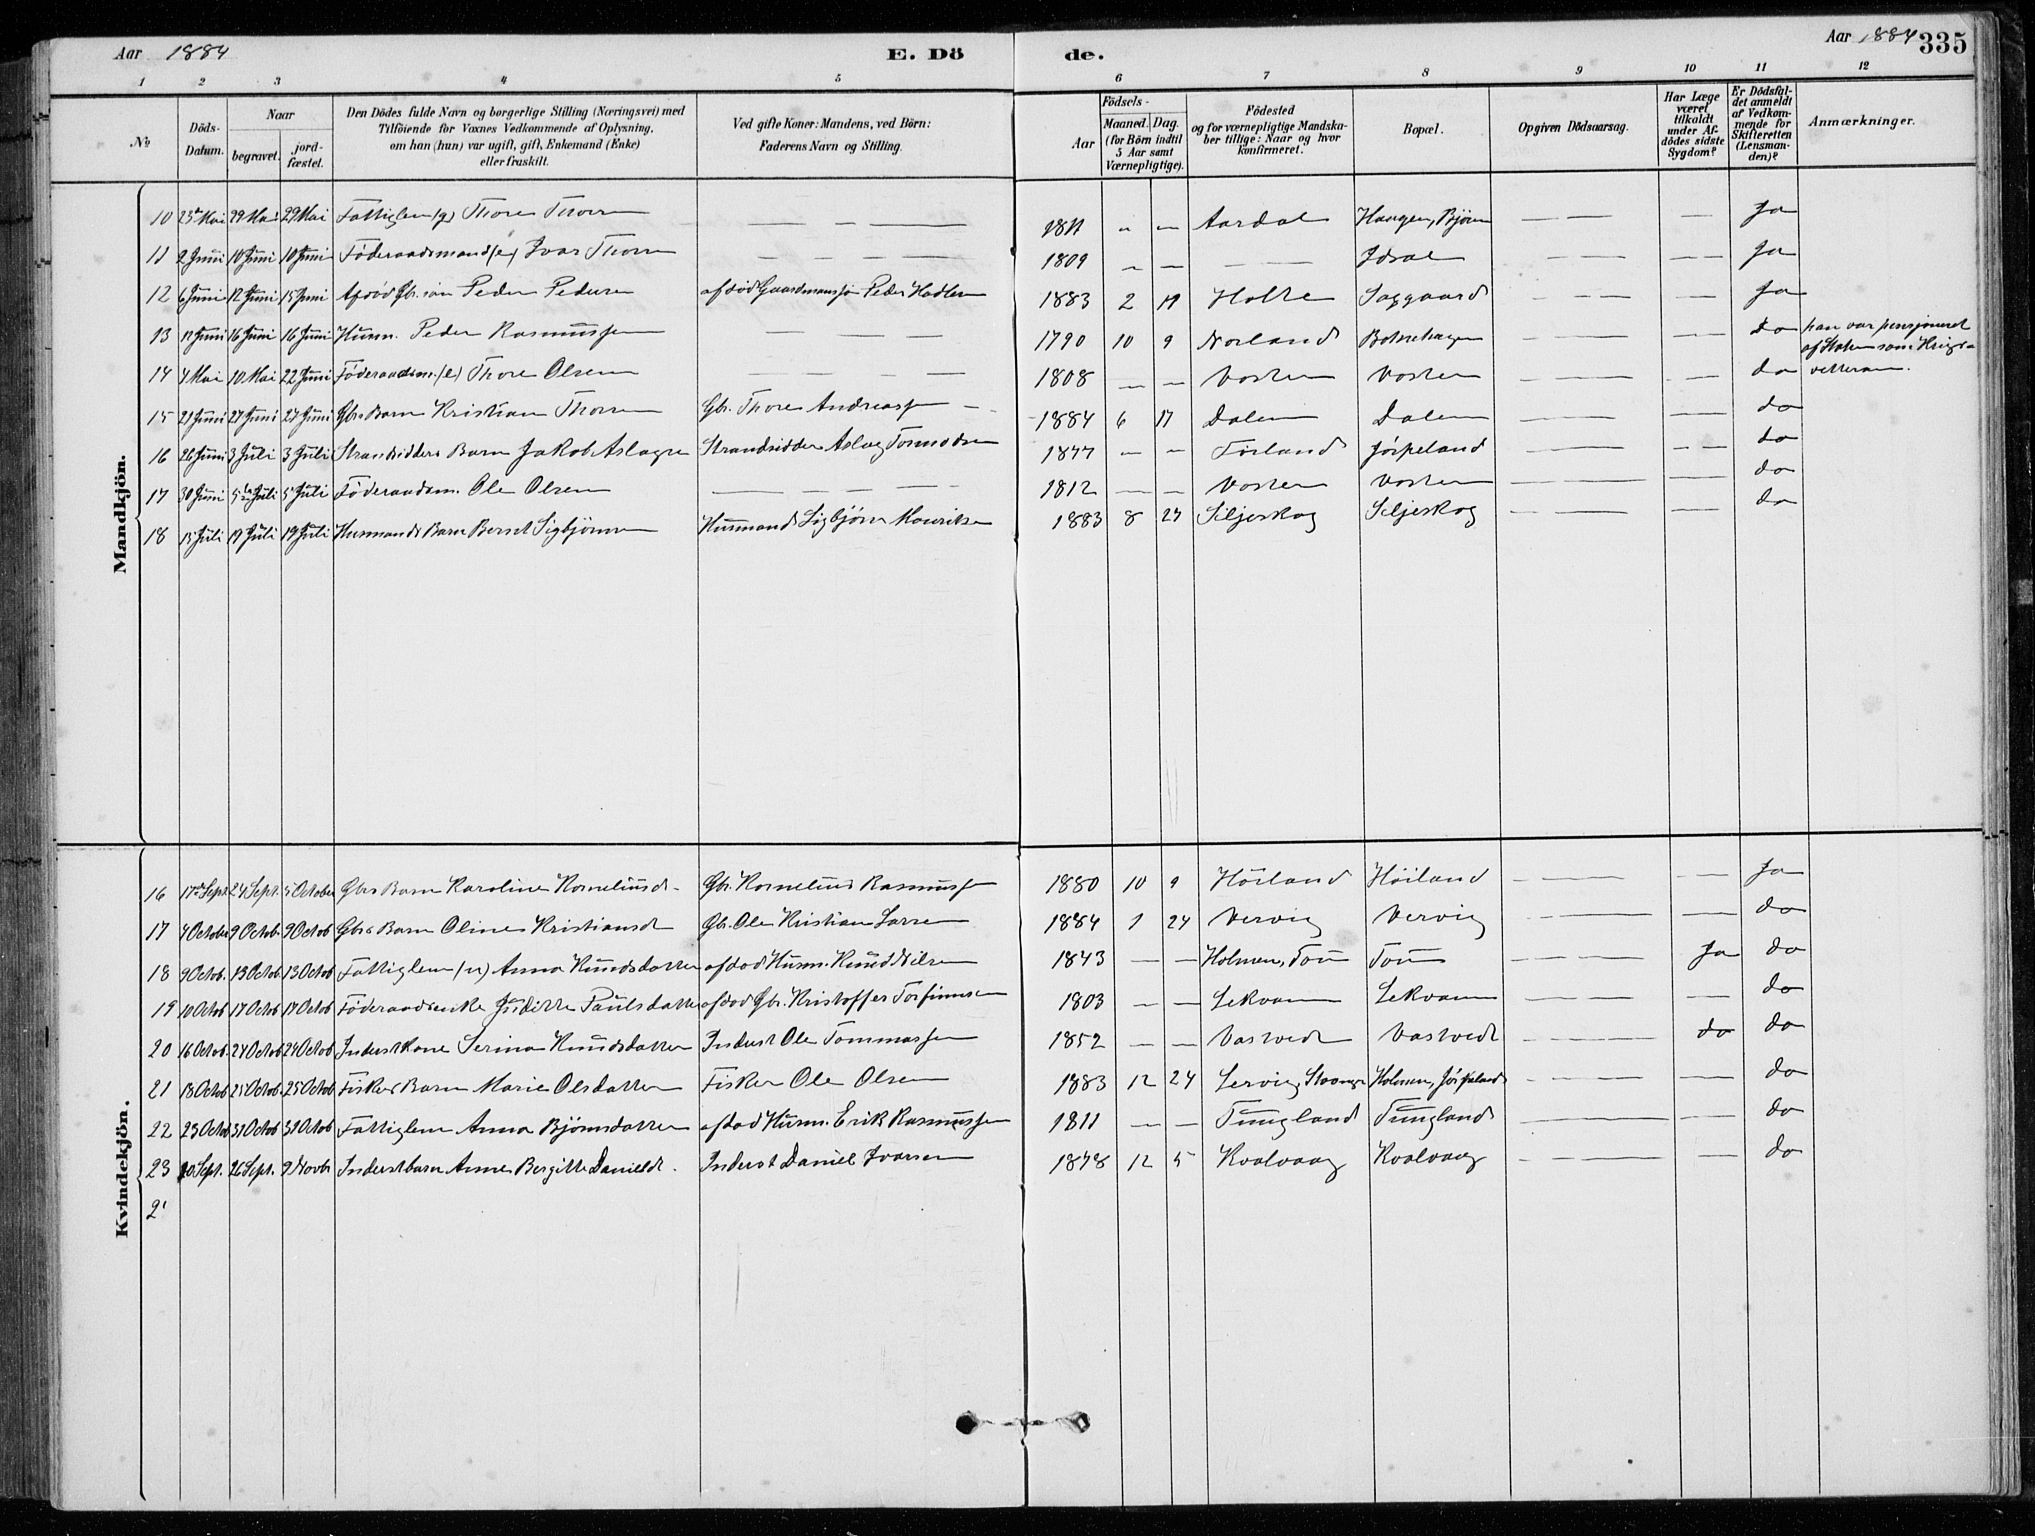 Aar 1884
E. Dö de.
Aar 1884 335
1 2 3 4 5 6 7 8 9 10 11 12
No
Döds-Datum.
Naar
begravet.
jord-fæstet.
Den Dödes fulde Navn og borgerlige Stilling (Næringsvei) med
Tilföiende for Voxnes Vedkommende af Oplysning,
om han (hun) var ugift, gift, Enkemand (Enke)
eller fraskilt.
Ved gifte Koner: Mandens, ved Börn:
Faderens Navn og Stilling.
Födsels-
Aar
Maaned.
Dag.
(for Börn indtil
5 Aar samt
Værnepligtige).
Födested
og for værnepligtige Mandska-
ber tillige: Naar og hvor
konfirmeret.
Bopæl.
Opgiven Dödsaarsag.
Har Læge
været
tilkaldt
under Af-
dödes sidste
Sygdom?
Er Dödsfal-
det anmeldt
af Vedkom-
mende for
Skifteretten
(Lensman-
den)?
Anmærkninger.
Mandkjön.
10 23de Mai 29 Mai 29 Mai Fattiglem (g) Thore Thorsen — — — 1811 — — Aardal Haugen, Björn — — — Ja
11 2 Juni 10 Juni 10 Juni Föderaadsmand (e) Ivar Thorsen — — — 1809 — — — — Idsal — — — Ja
12 6 Juni 12 Juni 15 Juni Afdöd Gbr. sön Peder Pedersen afdöd Gaardmanssön Peder Hadlesen 1883 2 19 Holte Saggaard — — — Ja
13 12 Juni 16 Juni 16 Juni Husm. Peder Rasmussen — — — 1790 10 9 Norland Botnehagen — — — Do han var pensjoneret
af Staten som Krigs-
vetteran.
14 4 Mai 10 Mai 22 Juni Föderaadsm. (e) Thore Olsen — — — 1808 — — Vosten Vosten — — — do
15 21 Juni 27 Juni 27 Juni Gbrs Barn Kristian Thorsen Gbr. Thore Andreassen 1884 6 17 Dalen Dalen — — — do
16 26 Juni 3 Juli 3 Juli Strandsidders Barn Jakob Aslagsen Strandsidder Aslag Tormodsen 1877 — — Förland Jörpeland — — — do
17 30 Juni 5te Juli 5 Juli Föderaadsm. Ole Olsen — — — 1812 — — Vosten Vosten — — — do
18 13 Juli 19 Juli 19 Juli Husmands Barn Bernt Sigbjörnsen Husmand Sigbjörn Mouritsen 1883 8 27 Siljeskog Siljeskog — — — do
Kvindekjön.
16 17de Sept. 24 Sept. 5 October Gbrs Barn Karoline Korneliusd. Gbr. Kornelius Rasmussen 1880 10 9 Höiland Höiland — — — Ja
17 4 October 9 Octob. 9 Octob Gbrs Barn Oline Kristiansd. Gbr. Ole Kristian Larsen 1884 1 24 Vervig Vervig — — — do
18 9 Octob. 13 Octob 13 Octob Fattiglem (u) Anna Knudsdatter afdöd Husm. Knud Nilsen 1843 — — Holmen, Tou Tou — — Ja do
19 10 Octob 17 Octob 17 Octob Föderaadsenke Juditte Paulsdatter afdöd Gbr. Kristoffer Torfinnsen 1803 — — Lekvam Lekvam — — — do
20 16 Octob. 24 Octob 24 Octob Inderstkone Serina Knudsdatter Inderst Ole Tommassen 1852 — — Vastvedt Vastvedt — — do do
21 18 Octob 25 Octob. 25 Octob Fiskers Barn Marie Olsdatter Fisker Ole Olsen 1883 12 24 Lervig, Stavanger Holmen, Jörpeland — — — do
22 23 Octob 31 Octob 31 Octob Fattiglem Anna Björnsdatter afdöd Husm. Erik Rasmussen 1811 — — Tungland Tungland — — — do
23 20 Sept. 26 Sept. 9 Novbr Inderstbarn Anne Bergitte Danielsd. Inderst Daniel Ivarsen 1878 12 5 Kvalvaag Kvalvaag — — — do
2